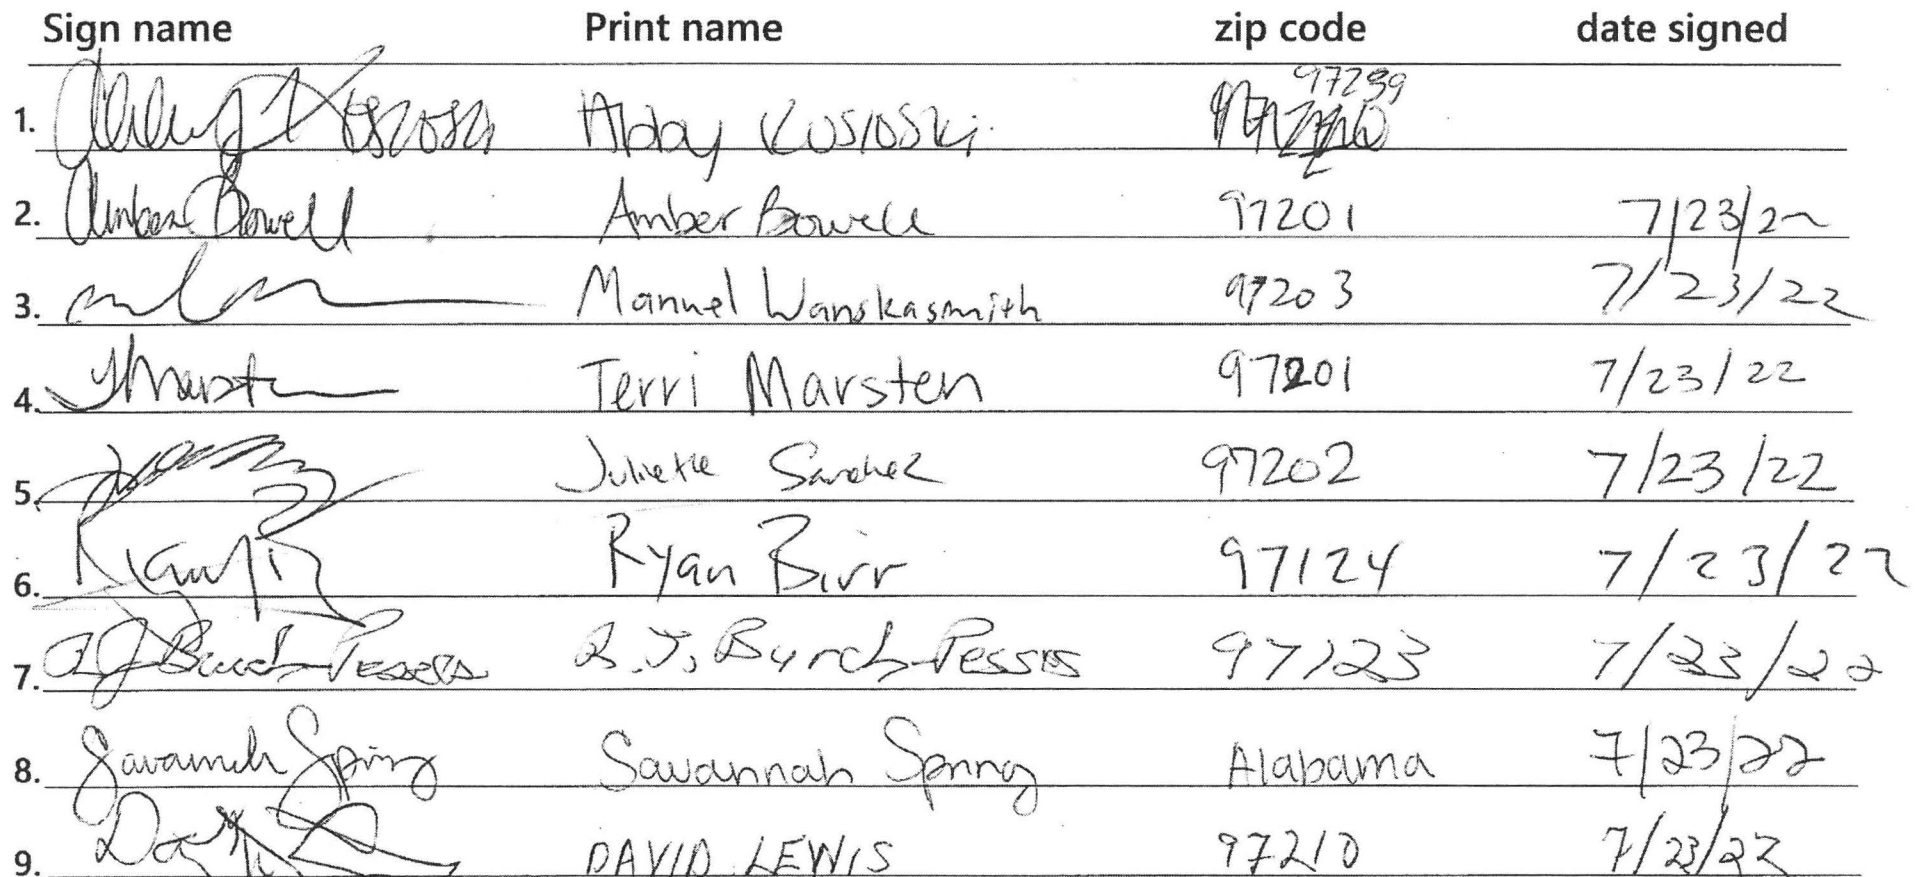 Sign name Print name zip code date signed
1. Abby Kosioski 97239
2. Amber Bowell Amber Bowell 97201 7/23/22
3. Manuel Wanskasmith 97203 7/23/22
4. TMarsten Terri Marsten 97201 7/23/22
5. Juliette Sanchez 97202 7/23/22
6. Ryan Birr 97124 7/23/22
7. Burch-Pessis J. Burch-Pessis 97123 7/23/22
8. Savannah Spring Savannah Spring Alabama 7/23/22
9. DAVID LEWIS 97210 7/23/22